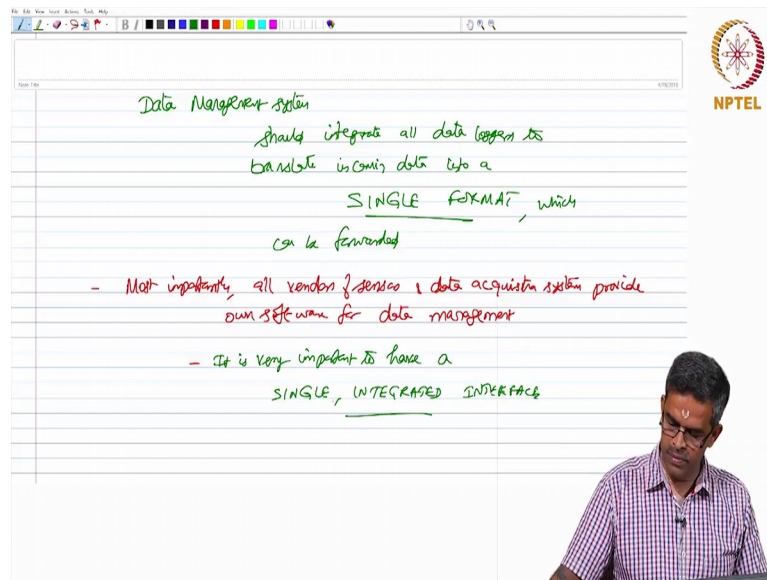 File Edit View Insert Actions Tools Help
Note Title
4/19/2018
NPTEL
Data Management system
should integrate all data loggers to
translate incoming data into a
SINGLE FORMAT, which
can be forwarded
- Most importantly, all vendors of sensors & data acquisition system provide
own software for data management
- It is very important to have a
SINGLE, INTEGRATED INTERFACE